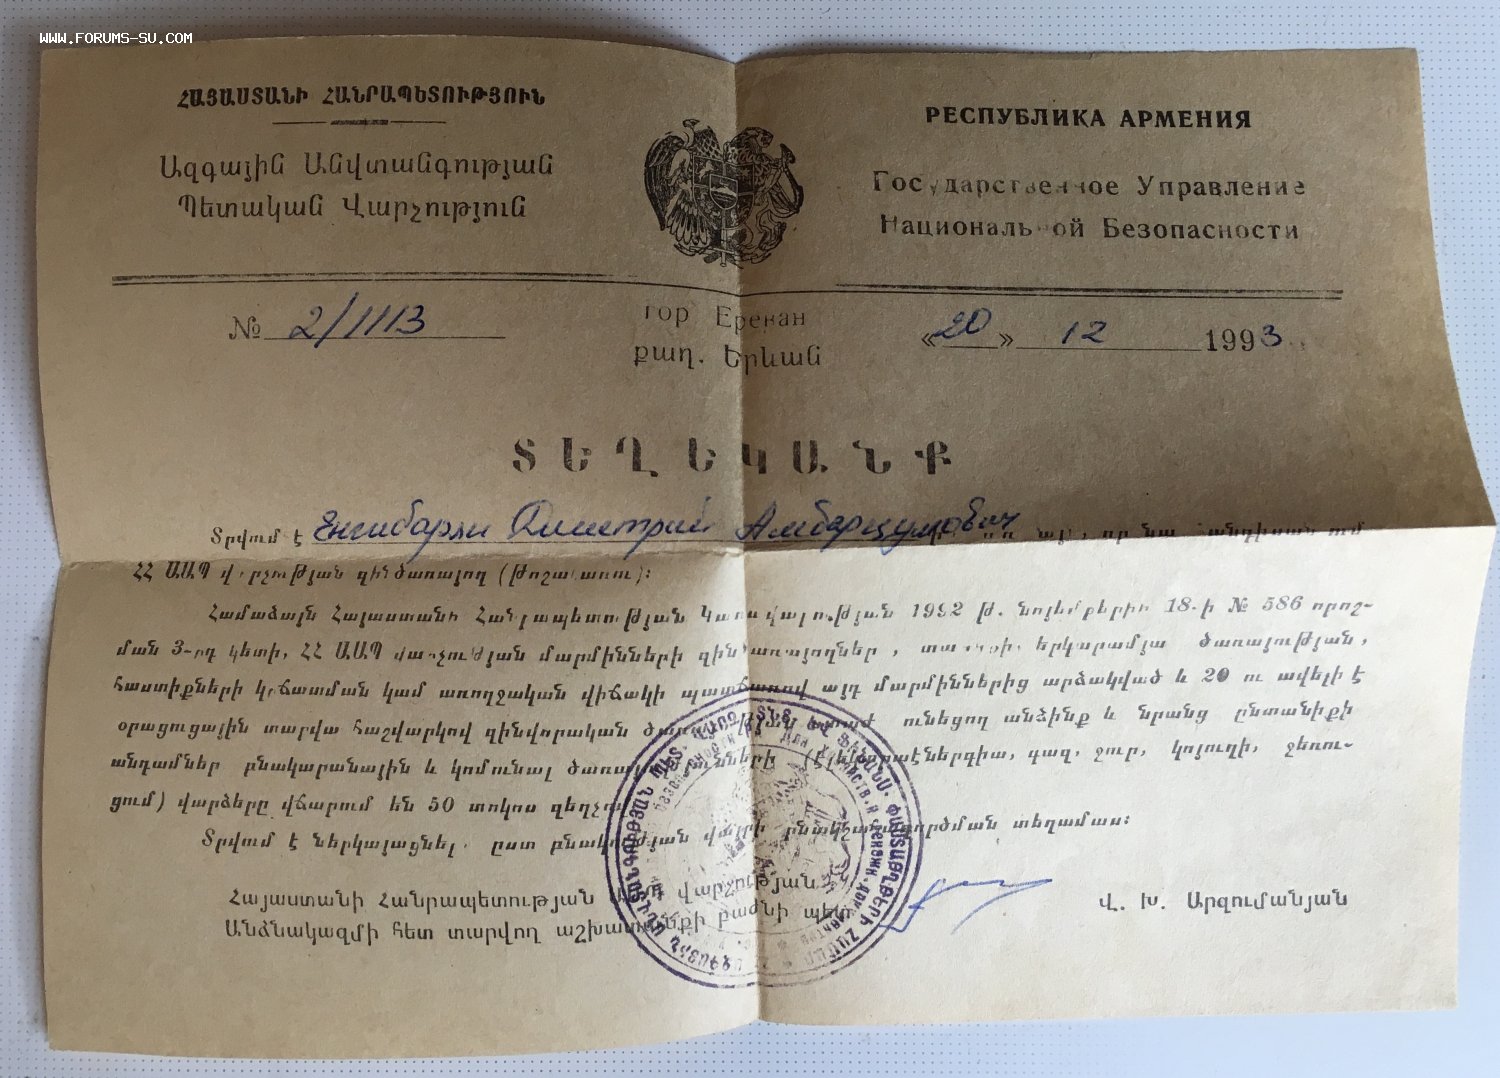 WWW.FORUMS-SU.COM
ՀԱՅԱՍՏԱՆԻ ՀԱՆՐԱՊԵՏՈՒԹՅՈՒՆ
Ազգային Անվտանգության
Պետական Վարչություն
РЕСПУБЛИКА АРМЕНИЯ
Государственное Управление
Национальной Безопасности
№ 2/1113
гор Ереван
քաղ. Երևան
«20» 12 1993
ՏԵՂԵԿԱՆՔ
Տրվում է Енгибарли Дмитрий Амбарцумович այն, որ նա հանդիսանում
ՀՀ ԱԱՊ վարչության զինծառայող (թոշակառու)։
Համաձայն Հայաստանի Հանրապետության Կառավարության 1992 թ. նոյեմբերի 18-ի № 586 որոշ-
ման 3-րդ կետի, ՀՀ ԱԱՊ վարչության մարմինների զինծառայողներ, երկարամյա ծառայության,
հաստիքների կրճատման կամ առողջական վիճակի պատճառով այդ մարմիններից արձակված և 20 ու ավելի է
օրացուցային տարվա հաշվարկով զինվորական ծառայության ստաժ ունեցող անձինք և նրանց ընտանիքի
անդամներ բնակարանային և կոմունալ ծառայությունների (էլեկտրաէներգիա, գազ, ջուր, կոյուղի, ջեռու-
ցում) վարձերը վճարում են 50 տոկոս զեղչով
Տրվում է ներկայացնել ըստ բնակության վայրի բնակշահագործման տեղամաս։
Հայաստանի Հանրապետության ԱԱՊ վարչության
Անձնակազմի հետ տարվող աշխատանքի բաժնի պետ
Վ. Խ. Արզումանյան